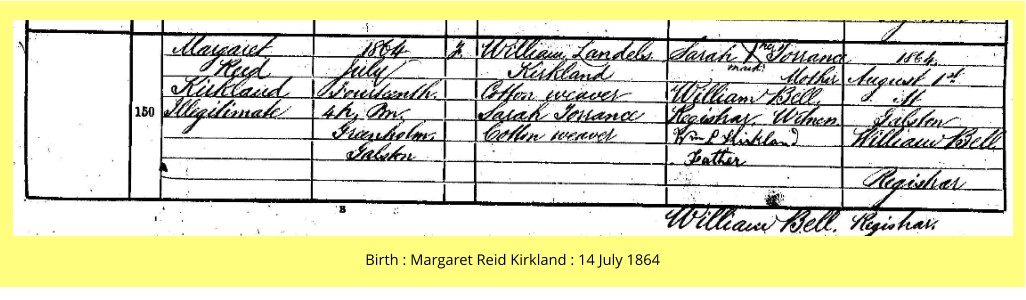 150
Margaret
Reid
Kirkland
Illegitimate
1864
July
Fourteenth
4h. Pm.
Greenholm
Galston
F
William Landels
Kirkland
Cotton weaver
Sarah Torrance
Cotton weaver
Sarah X her Torrance
mark Mother
William Bell
Registrar Witness
Wm L Kirkland
Father
1864
August 1st
At
Galston
William Bell
Registrar
B
William Bell, Registrar.
Birth : Margaret Reid Kirkland : 14 July 1864